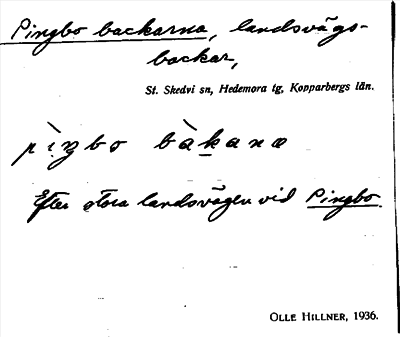 Pingbo backarna, landsvägs-
backar,
St. Skedvi sn, Hedemora tg, Kopparbergs län.
pìŋbo bàkanæ
Efter stora landsvägen vid Pingbo
OLLE HILLNER, 1936.